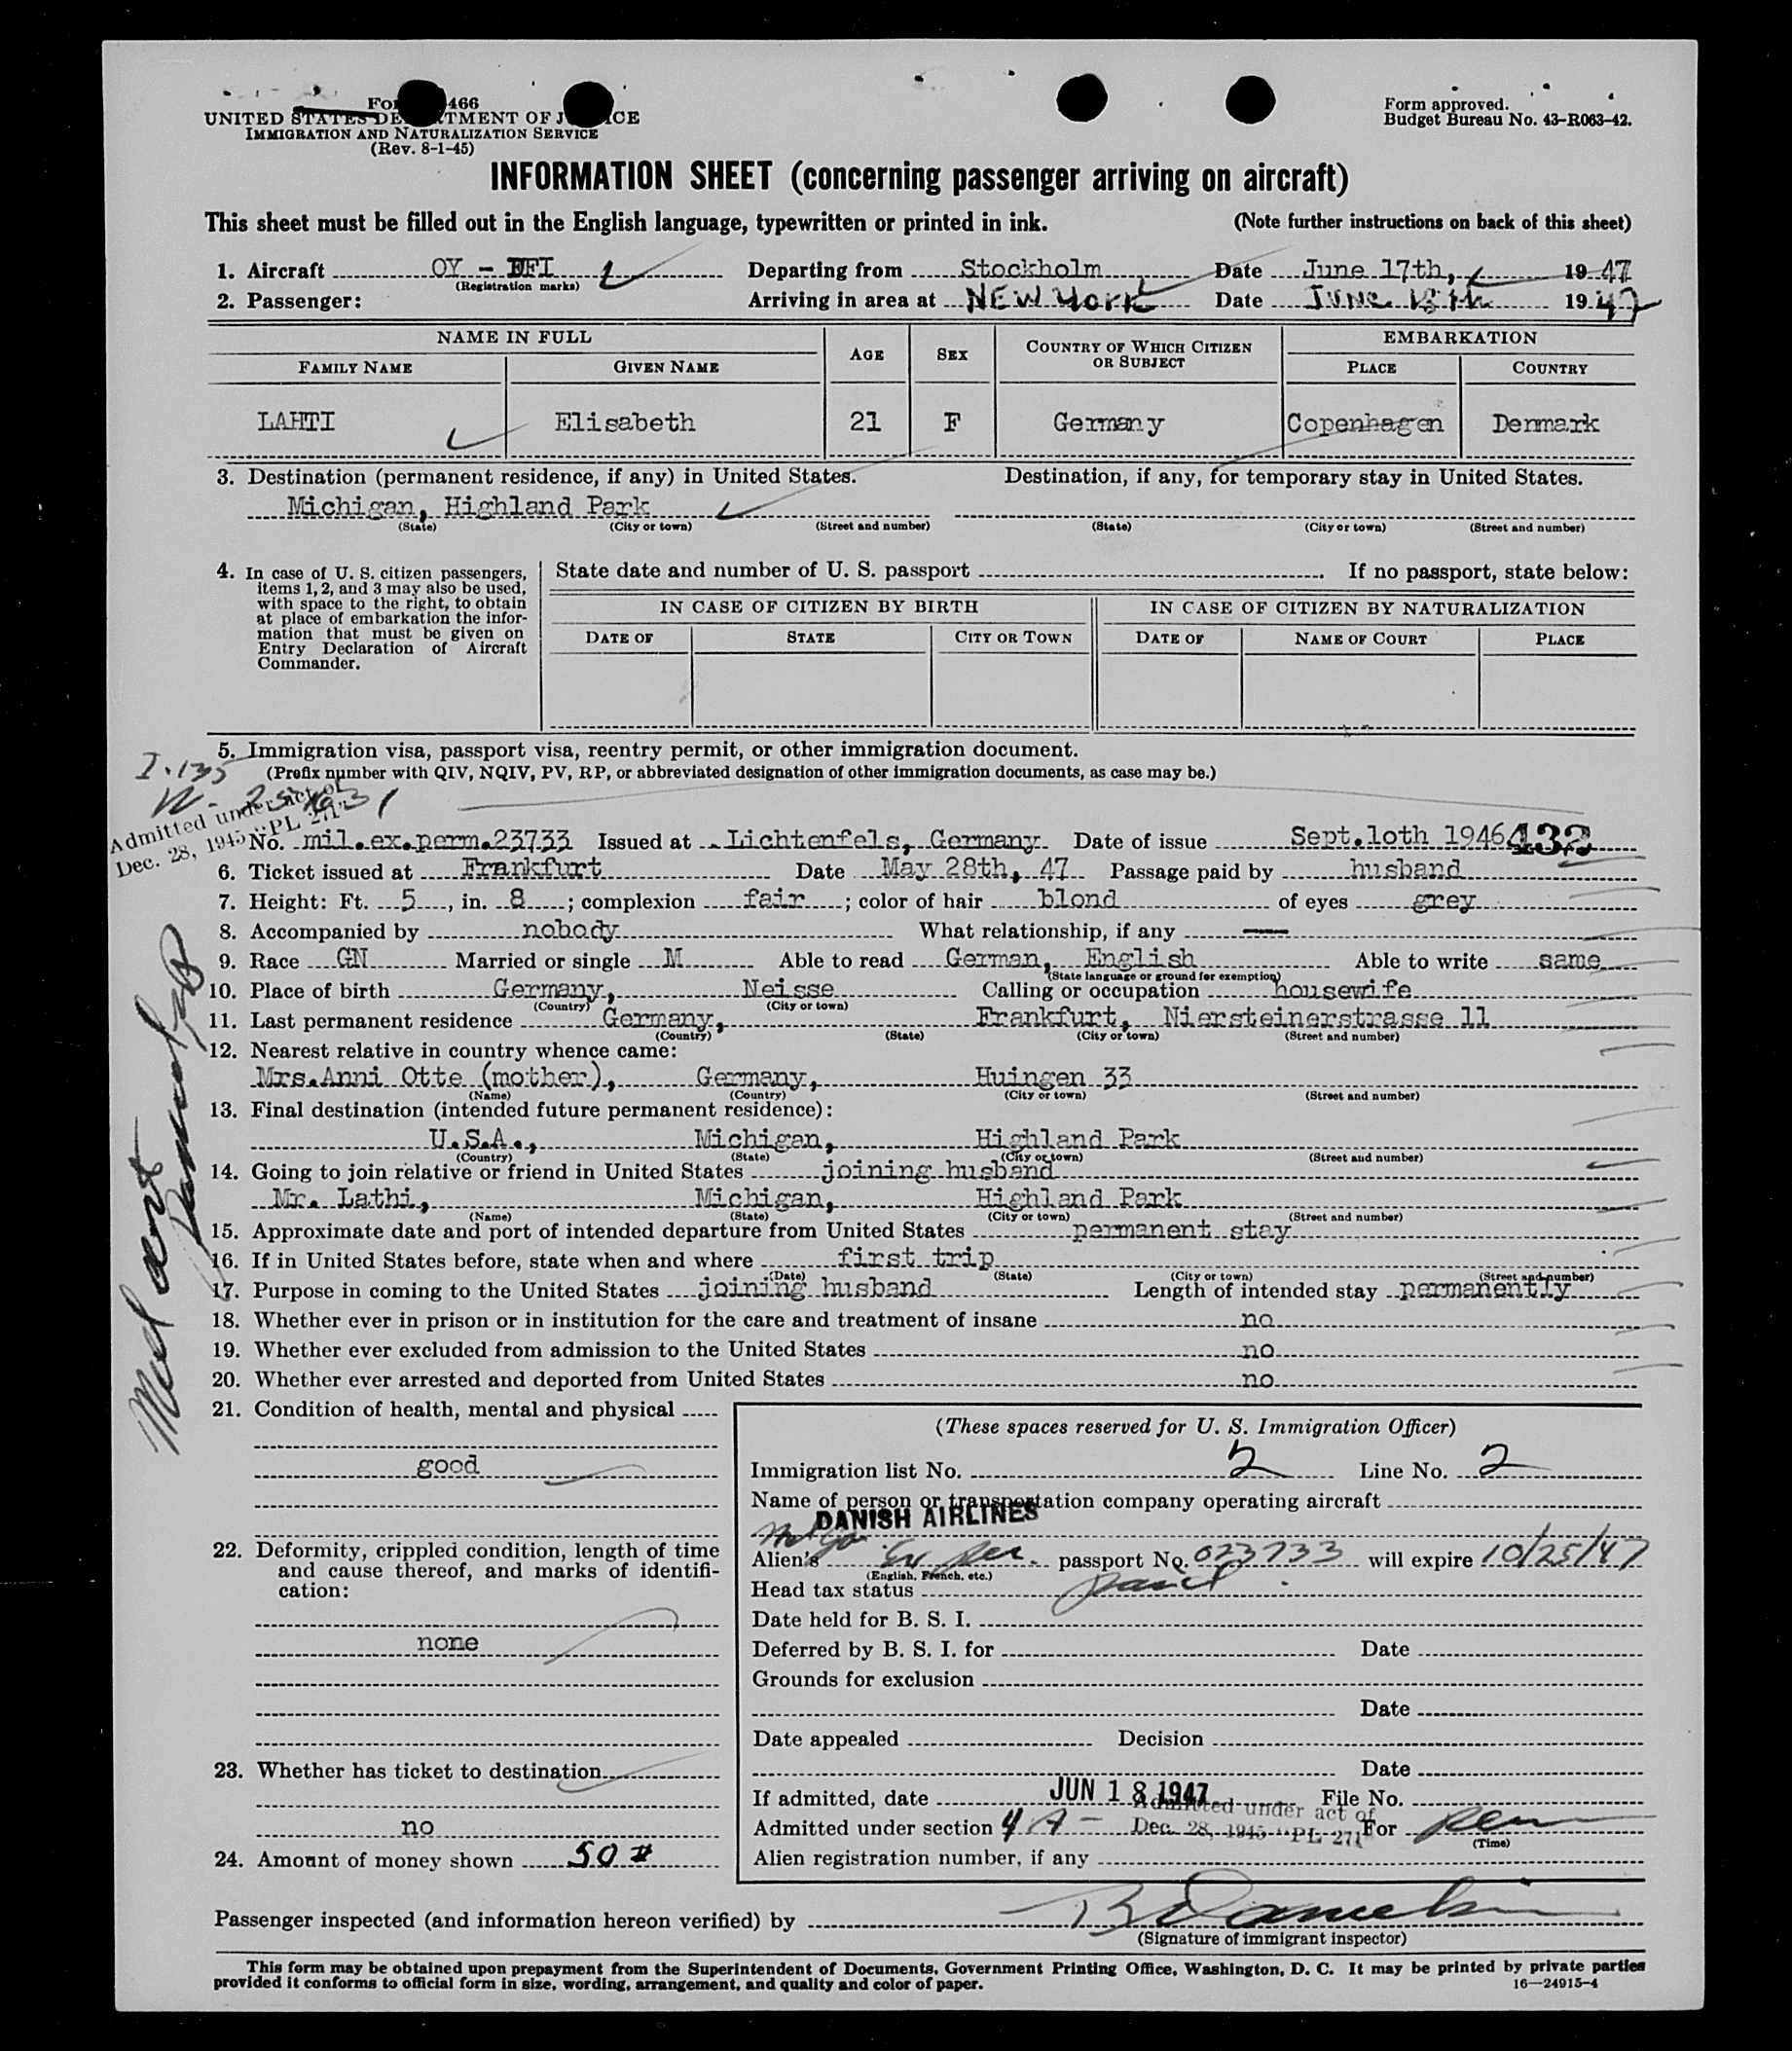 Form 466
UNITED STATES DEPARTMENT OF JUSTICE
IMMIGRATION AND NATURALIZATION SERVICE
(Rev. 8-1-45)
Form approved.
Budget Bureau No. 43-R063-42.
INFORMATION SHEET (concerning passenger arriving on aircraft)
This sheet must be filled out in the English language, typewritten or printed in ink. (Note further instructions on back of this sheet)
1. Aircraft OY - DFI Departing from Stockholm Date June 17th, 19 47
(Registration marks)
2. Passenger: Arriving in area at NEW YORK Date JUNE 18th 19 47
NAME IN FULL AGE SEX COUNTRY OF WHICH CITIZEN OR SUBJECT EMBARKATION
FAMILY NAME GIVEN NAME PLACE COUNTRY
LAHTI Elisabeth 21 F Germany Copenhagen Denmark
3. Destination (permanent residence, if any) in United States. Destination, if any, for temporary stay in United States.
Michigan, Highland Park
(State) (City or town) (Street and number) (State) (City or town) (Street and number)
4. In case of U. S. citizen passengers, items 1, 2, and 3 may also be used, with space to the right, to obtain at place of embarkation the information that must be given on Entry Declaration of Aircraft Commander.
State date and number of U. S. passport . If no passport, state below:
IN CASE OF CITIZEN BY BIRTH IN CASE OF CITIZEN BY NATURALIZATION
DATE OF STATE CITY OR TOWN DATE OF NAME OF COURT PLACE
5. Immigration visa, passport visa, reentry permit, or other immigration document.
I-135
(Prefix number with QIV, NQIV, PV, RP, or abbreviated designation of other immigration documents, as case may be.)
Admitted under act of
Dec. 28, 1945 "PL 271"
No. mil.ex.perm.23733 Issued at Lichtenfels, Germany Date of issue Sept.10th 1946 432
6. Ticket issued at Frankfurt Date May 28th, 47 Passage paid by husband
7. Height: Ft. 5, in. 8; complexion fair; color of hair blond of eyes grey
8. Accompanied by nobody What relationship, if any ---
9. Race GN Married or single M Able to read German, English Able to write same
(State language or ground for exemption)
10. Place of birth Germany, Neisse Calling or occupation housewife
(Country) (City or town)
11. Last permanent residence Germany, Frankfurt, Niersteinerstrasse 11
(Country) (State) (City or town) (Street and number)
12. Nearest relative in country whence came:
Mrs.Anni Otte (mother), Germany, Huingen 33
(Name) (Country) (City or town) (Street and number)
13. Final destination (intended future permanent residence):
U.S.A., Michigan, Highland Park
(Country) (State) (City or town) (Street and number)
14. Going to join relative or friend in United States joining husband
Mr. Lathi, Michigan, Highland Park
(Name) (State) (City or town) (Street and number)
15. Approximate date and port of intended departure from United States permanent stay
16. If in United States before, state when and where first trip
(Date) (State) (City or town) (Street and number)
17. Purpose in coming to the United States joining husband Length of intended stay permanently
18. Whether ever in prison or in institution for the care and treatment of insane no
19. Whether ever excluded from admission to the United States no
20. Whether ever arrested and deported from United States no
21. Condition of health, mental and physical
good
22. Deformity, crippled condition, length of time and cause thereof, and marks of identification:
none
23. Whether has ticket to destination
no
24. Amount of money shown 50 #
(These spaces reserved for U. S. Immigration Officer)
Immigration list No. 2 Line No. 2
Name of person or transportation company operating aircraft
DANISH AIRLINES
Alien's passport No. 023733 will expire 10/25/47
(English, French, etc.)
Head tax status
Date held for B. S. I.
Deferred by B. S. I. for Date
Grounds for exclusion
Date
Date appealed Decision
Date
If admitted, date JUN 18 1947 File No.
Admitted under section 4A - Admitted under act of Dec. 28, 1945 "PL 271" For
(Time)
Alien registration number, if any
Passenger inspected (and information hereon verified) by
(Signature of immigrant inspector)
This form may be obtained upon prepayment from the Superintendent of Documents, Government Printing Office, Washington, D. C. It may be printed by private parties
provided it conforms to official form in size, wording, arrangement, and quality and color of paper. 16—24915-4